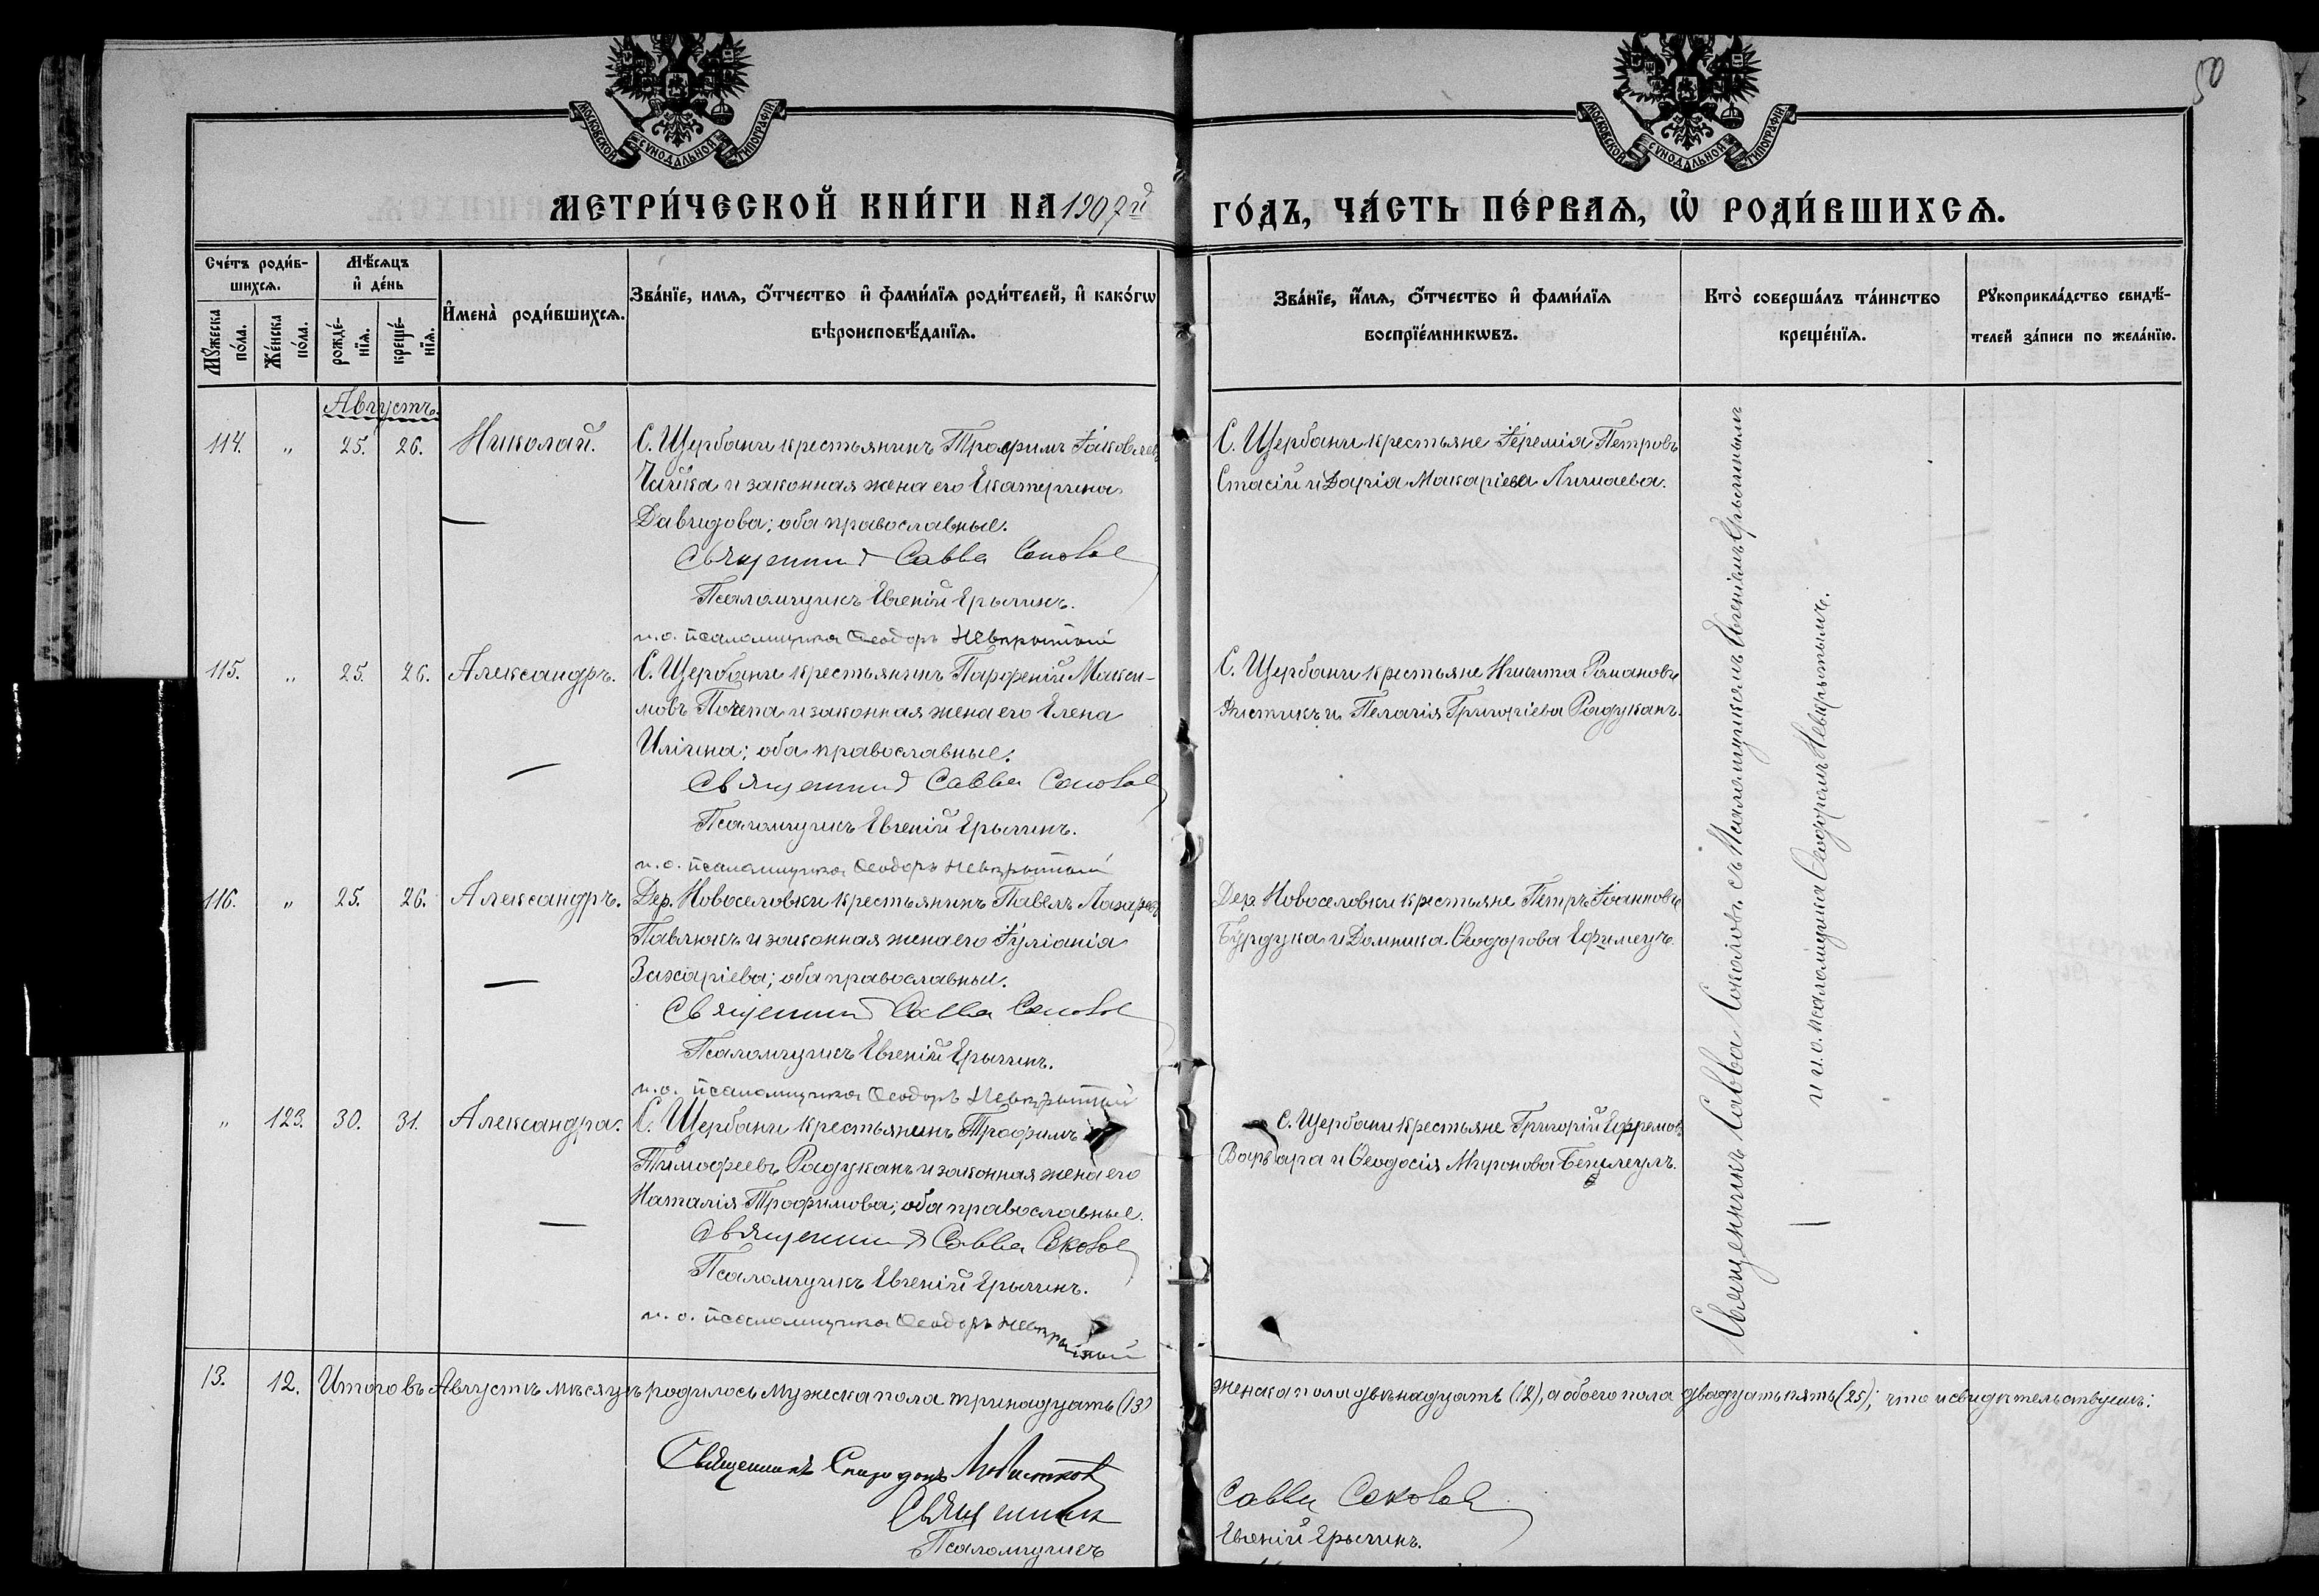 50
МОСКОВСКОЙ СУНОДАЛЬНОЙ ТИПОГРАФІИ
МОСКОВСКОЙ СУНОДАЛЬНОЙ ТИПОГРАФІИ
МЕТРИ́ЧЕСКОЙ КНИ́ГИ НА 1907й ГО́ДЪ, ЧА́СТЬ ПЕ́РВАѦ, Ѡ҆ РОДИ́ВШИХСѦ.
Сче́тъ роди́в-
шихсѧ.
Мꙋ́жеска по́ла.
Же́нска по́ла.
Мѣ́сѧцъ
и҆ де́нь
рожде́-нїѧ.
креще́-нїѧ.
И҆мена̀ роди́вшихсѧ.
Зва́нїе, имѧ, ѻ҆́тчество и҆ фами́лїѧ роди́телей, и҆ како́гѡ
вѣроисповѣ́данїѧ.
Зва́нїе, и҆́мѧ, ѻ҆́тчество и҆ фами́лїѧ
воспрїе́мникѡвъ.
Кто̀ соверша́лъ та́инство
креще́нїѧ.
Рꙋкоприкла́дство свидѣ́-
телей за́писи по жела́нїю.
Августъ.
114. „ 25. 26. Николай.
С. Щербани крестьянинъ Трофимъ Іаковлевъ
Чайка и законная жена его Екатерина
Давидова; оба православные.
Священник Савва Соколов
Псаломщикъ Евгеній Ерыгинъ.
и. о. псаломщика Ѳеодоръ Невкрытый
С. Щербани крестьяне Іеремія Петровъ
Стасій и Дарія Макаріева
115. „ 25. 26. Александръ.
С. Щербани крестьянинъ Парфеній Макси-
мовъ Почепа и законная жена его Елена
Илiина; оба православные.
Священник Савва Соколов
Псаломщикъ Евгеній Ерыгинъ.
и. о. псаломщика Ѳеодоръ Невкрытый
С. Щербани крестьяне Никита Романовъ
и Пелагія Григоріева Радуканъ.
116. „ 25. 26. Александръ.
Дер. Новоселовки крестьянинъ Павелъ Лазаревъ
Павлюкъ и законная жена его Іуліанія
Захаріева; оба православные.
Священник Савва Соколов
Псаломщикъ Евгеній Ерыгинъ.
и. о. псаломщика Ѳеодоръ Невкрытый
Дер. Новоселовки крестьяне Петръ Іоанновъ
Бурдука и Домника Ѳеодорова
„ 123. 30. 31. Александра.
С. Щербани крестьянинъ Трофимъ
Тимофеевъ Радуканъ и законная жена его
Наталія Трофимова; оба православные.
Священник Савва Соколов
Псаломщикъ Евгеній Ерыгинъ.
и. о. псаломщика Ѳеодоръ Невкрытый
С. Щербани крестьяне Григорій Ефремовъ
Варвара и Ѳеодосія Миронова
Священникъ Савва Соколовъ съ Псаломщикомъ Евгеніемъ Ерыгинымъ
и и. о. псаломщика Ѳеодоромъ Невкрытымъ.
13. 12. Итого въ Августѣ мѣсяцѣ родилось мужеска пола тринадцать (13) женска пола двѣнадцать (12), а обоего пола двадцать пять (25); что и свидѣтельствуемъ:
Священникъ Спиридонъ
Священник Савва Соколов
Псаломщикъ Евгеній Ерыгинъ.